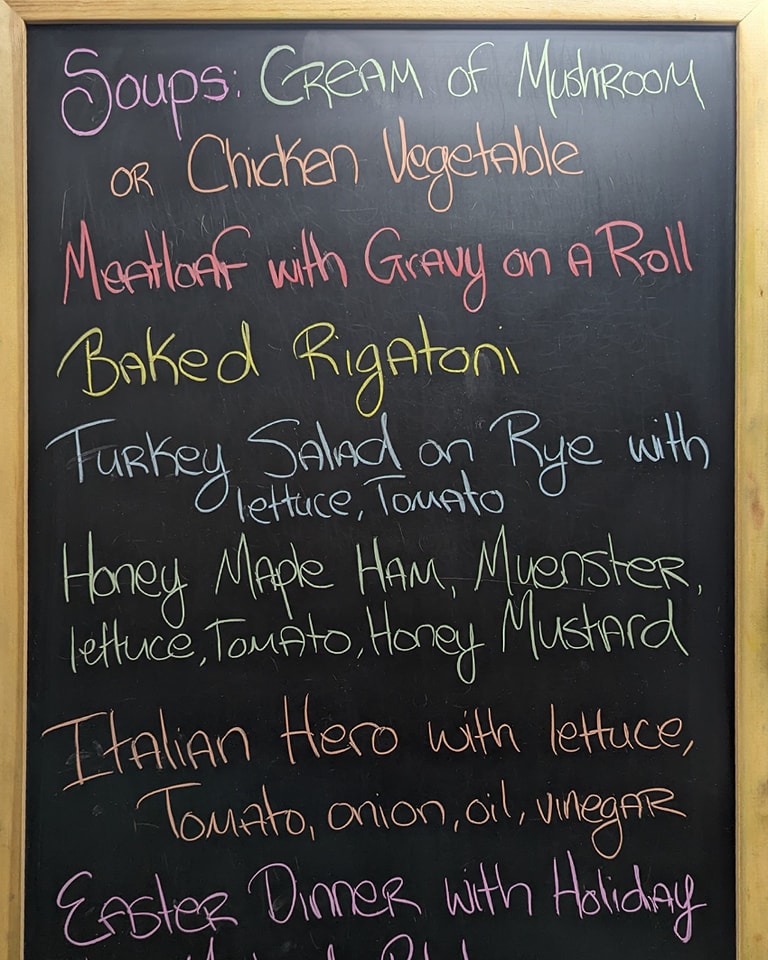 Soups: Cream of Mushroom
or Chicken Vegetable
Meatloaf with Gravy on a Roll
Baked Rigatoni
Turkey Salad on Rye with
lettuce, Tomato
Honey Maple Ham, Muenster,
lettuce, Tomato, Honey Mustard
Italian Hero with lettuce,
Tomato, onion, oil, vinegar
Easter Dinner with Holiday